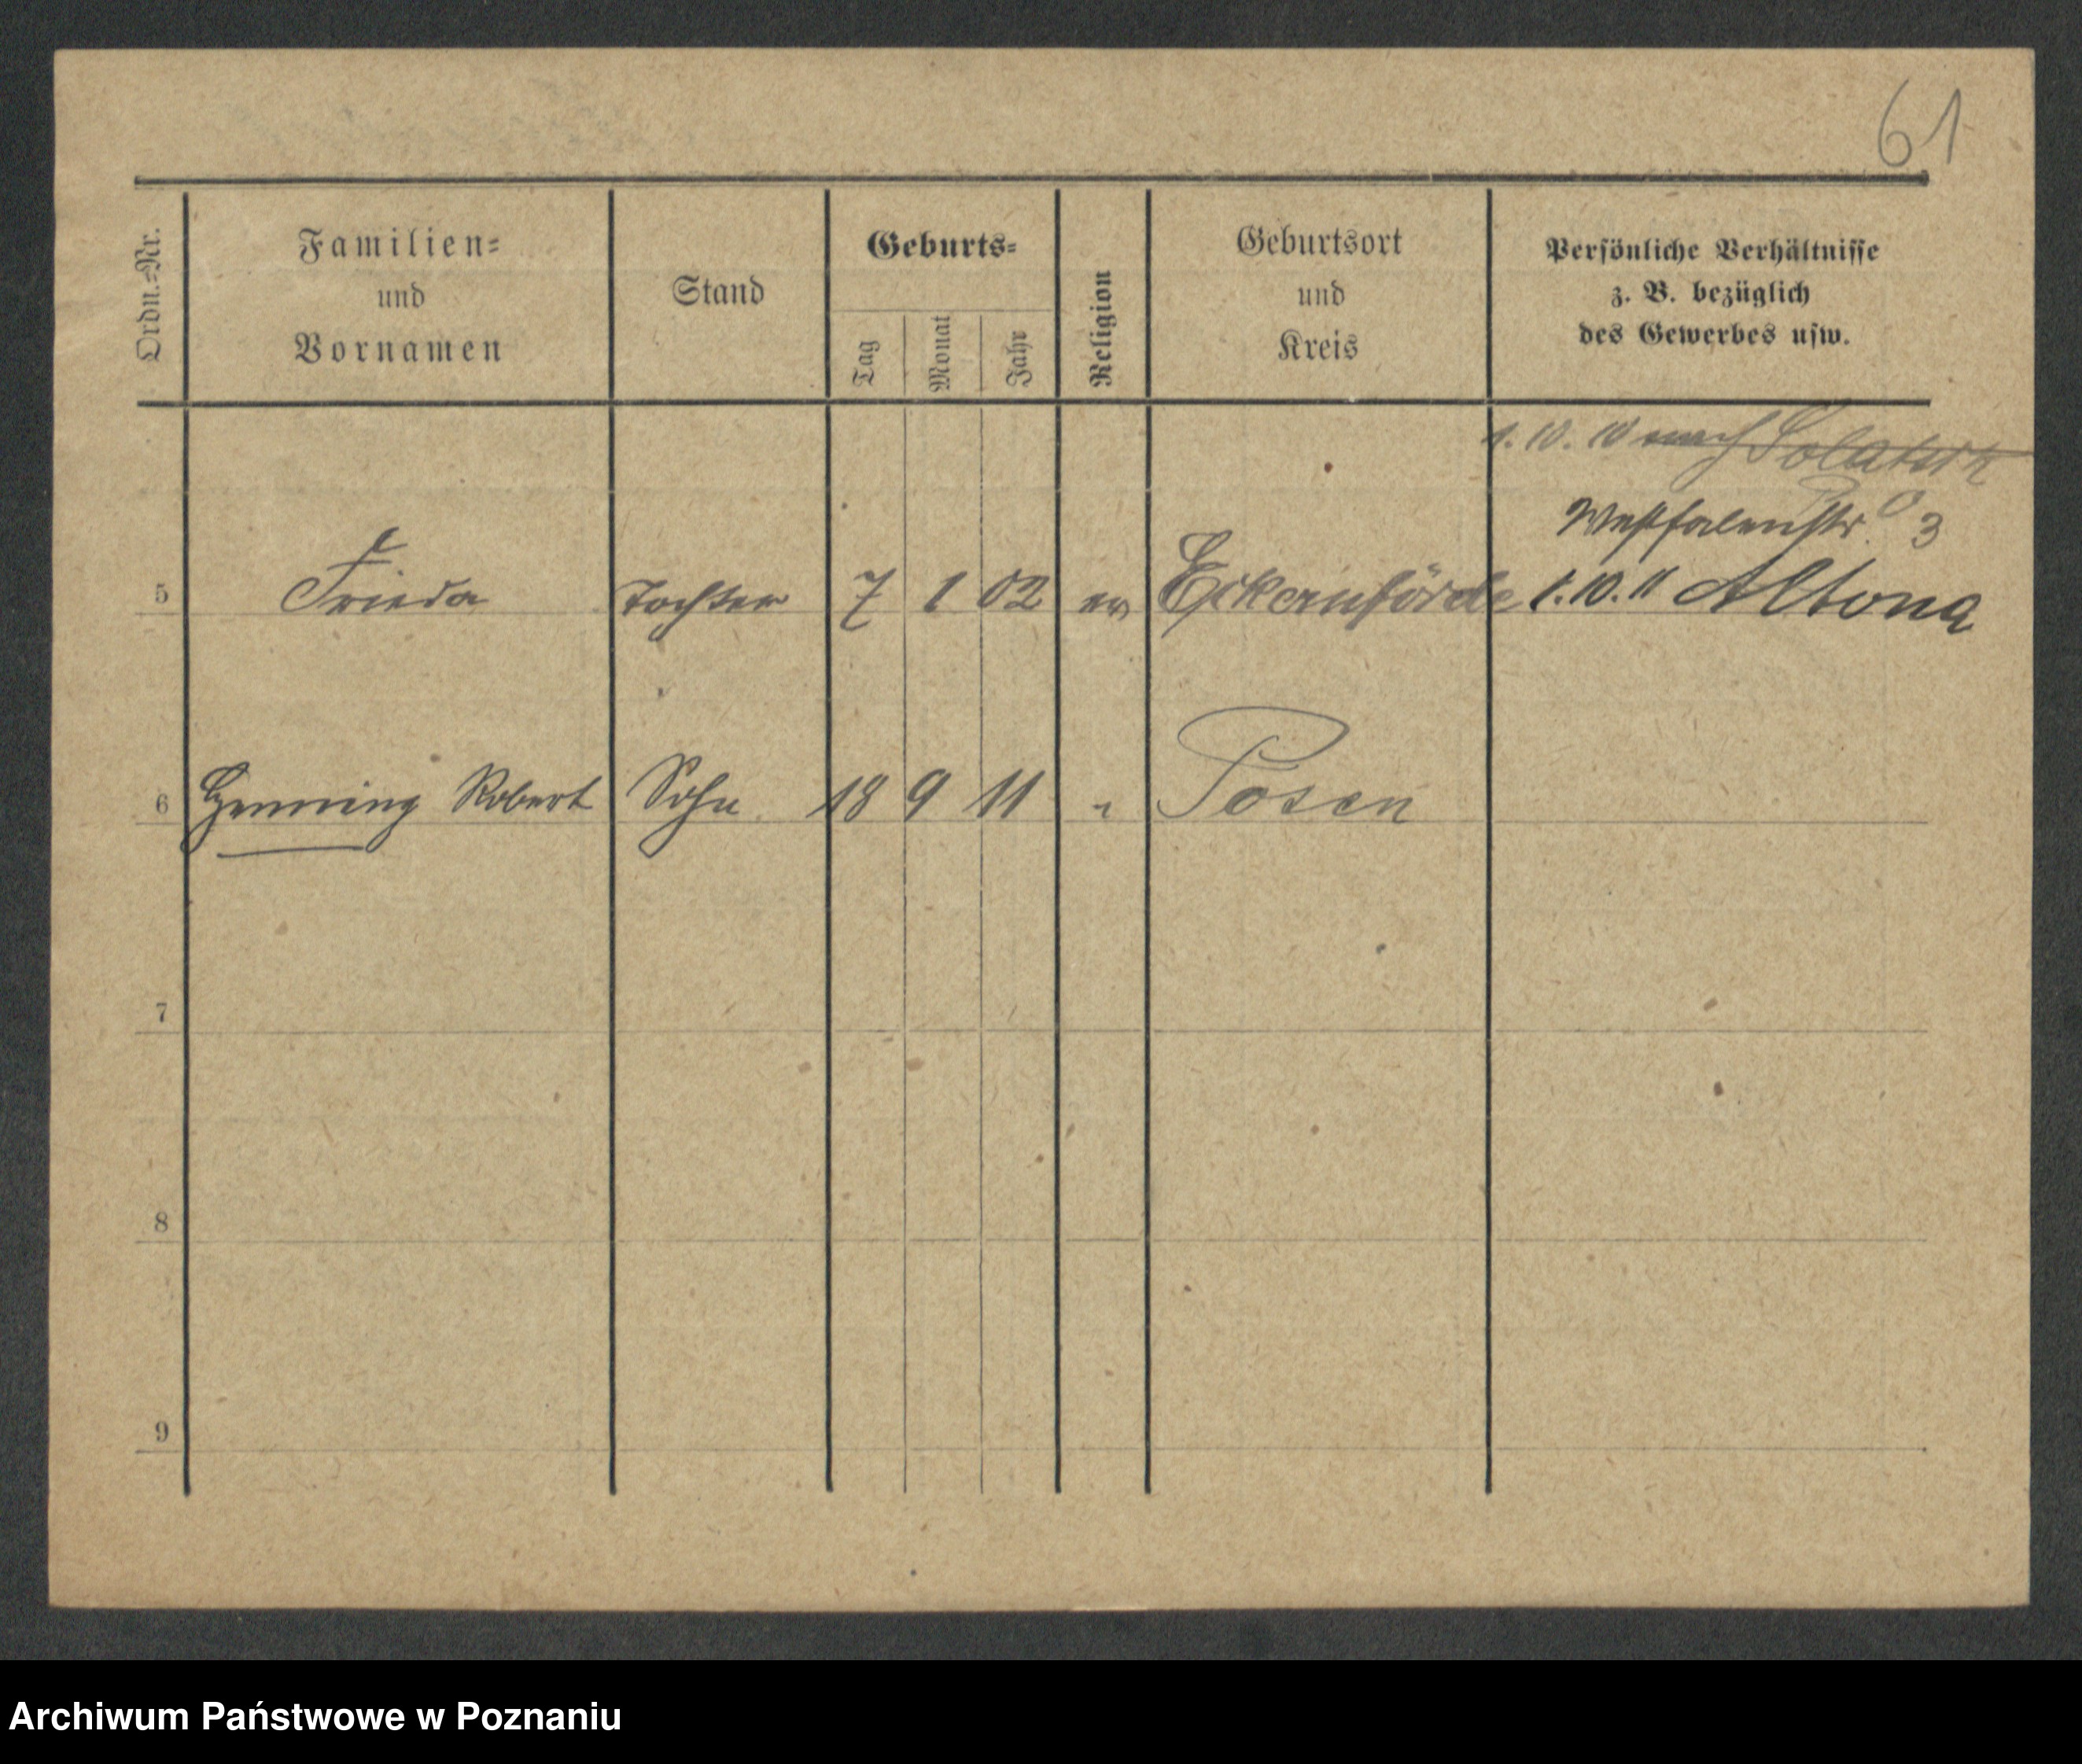 61
Ordn.-Nr.
Familien-
und
Vornamen
Stand
Geburts-
Tag
Monat
Jahr
Religion
Geburtsort
und
Kreis
Persönliche Verhältnisse
z. B. bezüglich
des Gewerbes usw.
1. 10. 10 nach Solatsch
Westfalenstr. 3
5 Frieda Tochter 7 1 02 ev Eckernförde 1. 10. 11 Altona
6 Henning Robert Sohn 18 9 11 " Posen
7
8
9
Archiwum Państwowe w Poznaniu